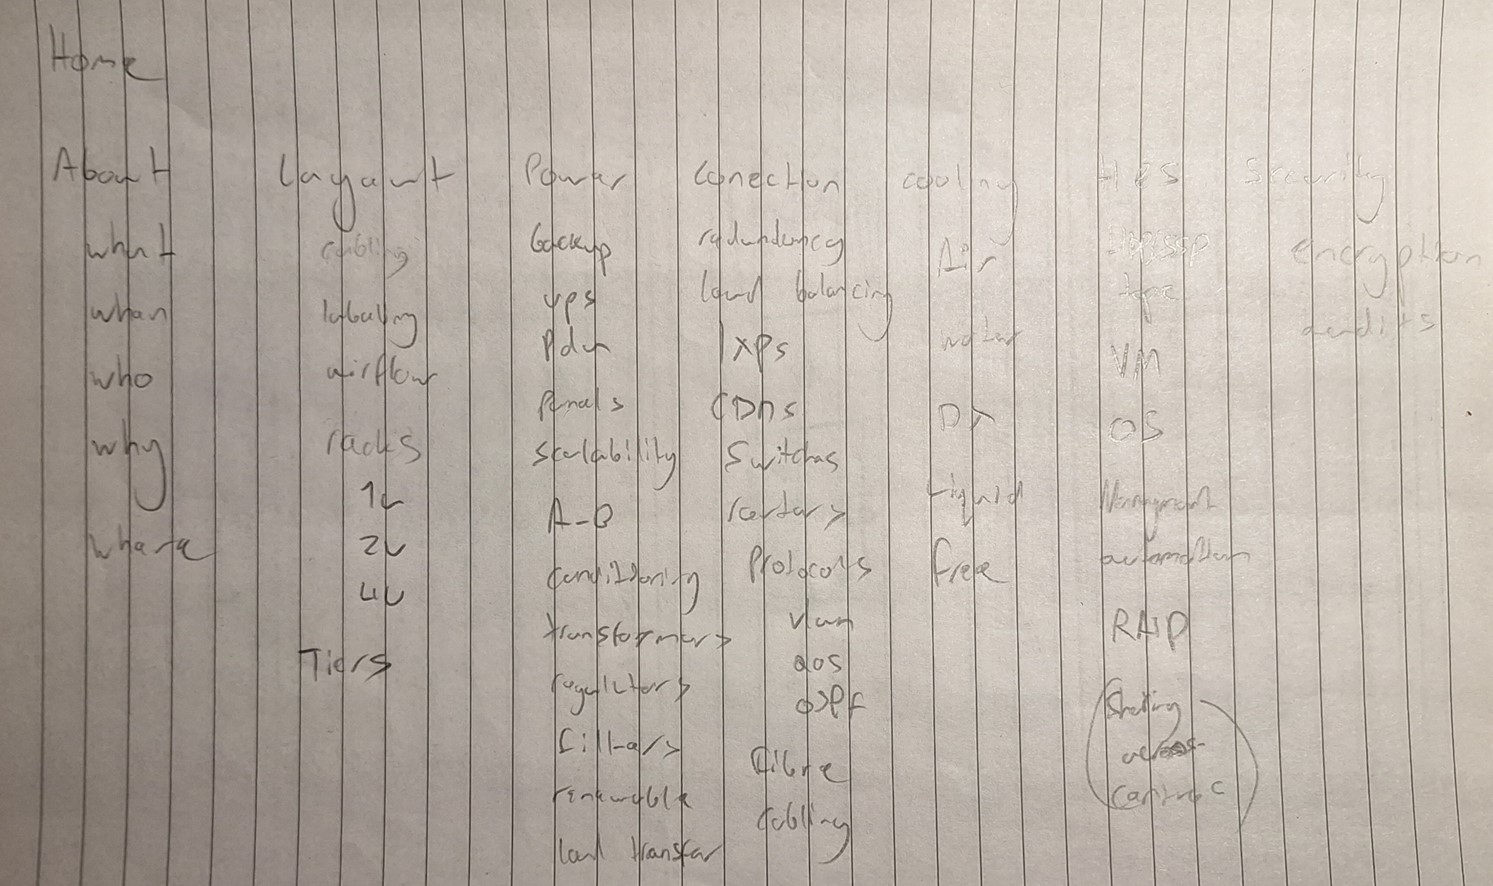 Home
About
what
when
who
why
where
Layout
cabling
labeling
airflow
racks
1U
2U
4U
Tiers
Power
backup
ups
Pdu
Panels
scalability
A-B
conditioning
transformers
regulators
filters
renewable
load transfer
Conection
redundency
load balancing
IXPs
CDNs
Switches
Protocols
vlan
qos
ospf
Fibre
cabling
cooling
Air
water
DX
Liquid
free
type
VM
OS
automation
RAID
Security
encryption
audits